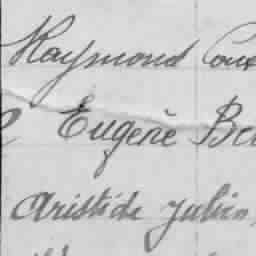 Raymond
Eugène
Aristide Julien